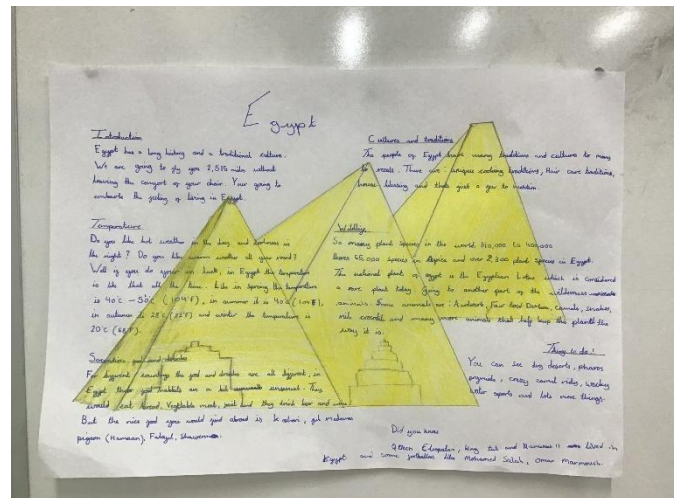 Egypt
Introduction
Egypt has a long history and a traditional culture.
We are going to fly you 2,515 miles without
leaving the comfort of your chair. Your going to
the feeling of living in Egypt.
Temperature
Do you like hot weather in the day and in
the night? Do you like warm weather all year round?
Well if you do your in luck, in Egypt the temperature
is like that all the time. Like in spring the temperature
is 40°c (104°F), in summer it is 40°c
in autumn is 28°c and winter the temperature is
20°c (68°F).
food and drinks
For different countrys the food and drinks are all different, in
Egypt there food habits are a bit They
would eat bread, Vegetable meat, and they drink beer and
But the nice food you would find abroad is Koshari, ful medames
pigeon (Hamaam), Falafel, Shawerma.
Cultures and traditions
The people of Egypt have many traditions and cultures to many
to create. There are: unique cooking traditions, Hair care traditions,
house blessing and thats just a few to mention
Wildlife
So many plant species in the world 310,000 to 400,000
leaves 45,000 plant species in Africa and over 2,300 plant species in Egypt.
The national plant of egypt is the Egyptian Lotus which is considered
a rare plant today. Going to another part of the wilderness
animals. Some animals are: Aardvark, camels, snakes,
nile and many more animals that help keep the planet the
way it is.
Things to do!
You can see big deserts, pharaos
pryamids, crazy camel rides, wacky
water sports and lots more things.
Did you know
king tut and lived in
Egypt and some footballers like Mohamed Salah, Omar Marmoush.